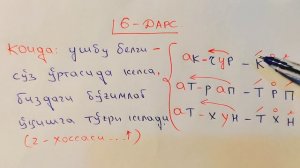 6-ДАРС.
Коида: ушбу белги –
сўз ўртасида келса,
биздаги бўғимлаб
ўқишга тўғри келади.
(2-хоссаси ...↑)
ак-чур – К
ат-рап – Т Р П
ат-хун – Т Х Н